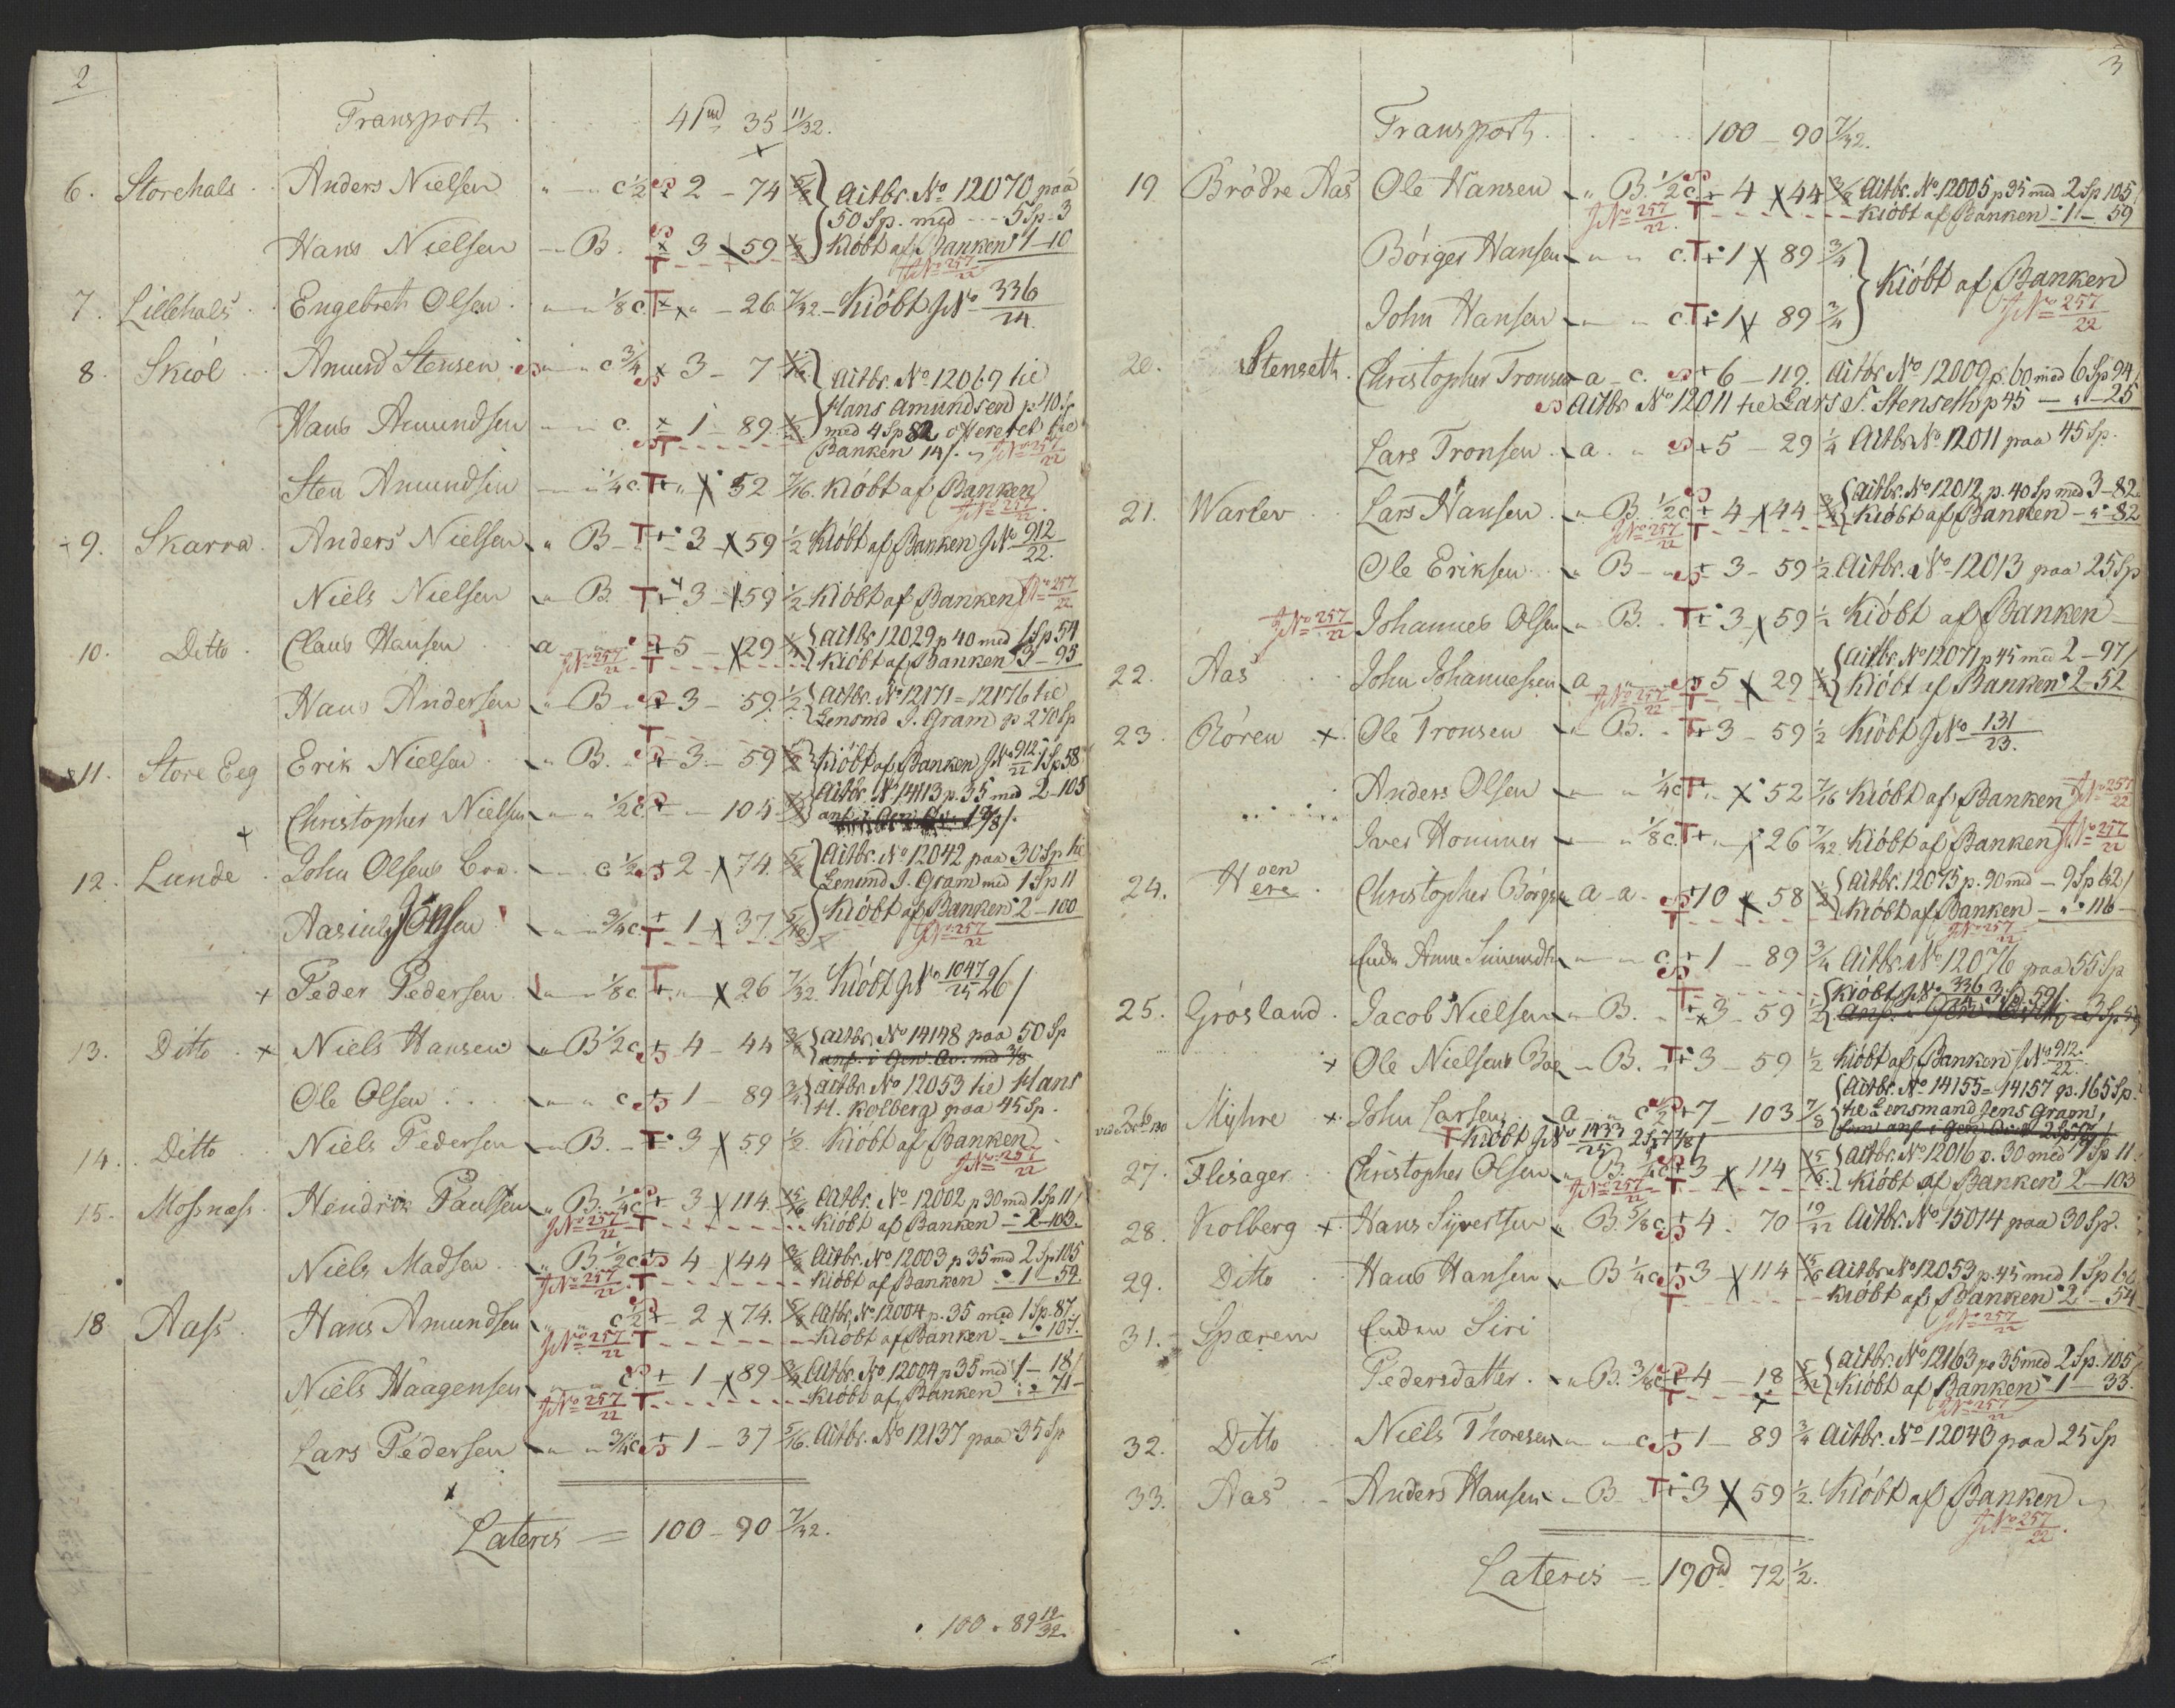 2
Transport 41 35 11/32.
6. Storehals Anders Nielsen c 1/2 2 - 74 5/8 Aitbr. No 12070 paa
50 Sp. med - - - 5 Sp. 3
Hans Nielsen B. 3 59 1/2 Kiöbt af Banken 1 - 10
JNo 257/22
7. Lillehals Engebreth Olsen 1/8 c. T 26 7/32. Kiöbt JNo 336/24.
8. Skiöl Amund Stensen c 3/4 3 - 7 Aitbr. No 12069 til
Hans Amundsen p 40 Sp
Hans Amundsen c. 1 - 89 med 4 Sp 82 til
Banken 14/. JNo 257/22
Sten Amundsen 1/4 c. T 52 7/16. Kiöbt af Banken
JNo 257/22
9. Skarra Anders Nielsen B T 3 59 1/2 Kiöbt af Banken JNo 912/22.
Niels Nielsen B. T 3 59 1/2 Kiöbt af Banken JNo 257/22
10. Ditto Claus Hansen a 5 29 1/4 Aitbr 12029 p 40 med 1 Sp 54
JNo 257/22 T Kiöbt af Banken 3 - 95
Hans Andersen B 3 - 59 1/2 Aitbr. No 12171 = 12176 til
Lensmd J. Gram p 270 Sp
11. Store Eeg Erik Nielsen B. 3 - 59 1/2 Kiöbt af Banken JNo 912/22 1 Sp 58
Christopher Nielsen 1/2 c 104 Aitbr. No 14113 p. 35 med 2 - 105
12. Lunde John Olsens c 1/2 2 74. 5/8 Aitbr. No 12042 paa 30 Sp til
Lensmd J. Gram med 1 Sp 11
Jonsen 3/4 c. 1 37 5/16 Kiöbt af Banken 2 - 100
JNo 257/22
Peder Pedersen 1/8 c. T 26 7/32. Kiöbt JNo 1047/25 26/
13. Ditto Niels Hansen B 1/2 c 4 - 44 3/8 Aitbr. No 14148 paa 50 Sp
Ole Olsen c 1 - 89 3/4 Aitbr. No 12053 til Hans
H. Kolberg paa 45 Sp.
14. Ditto Niels Pedersen B. T 3 59 1/2. Kiöbt af Banken
JNo 257/22
15. Mosnæss Hendrik Paulsen B. 1/4 c 3 114. 15/16 Aitbr. No 12002 p 30 md 1 Sp 11/
JNo 257/22 T Kiöbt af Banken 2 - 103.
Niels Madsen B 1/2 c 4 44 3/8 Aitbr. No 12003 p 35 md 2 Sp 105
JNo 257/22. T Kiöbt af Banken 1 - 59.
18 Aass Hans Amundsen c 1/2 2 74. 5/8 Aitbr. No 12004 p. 35 med 1 Sp. 87.
JNo 257/22 T Kiöbt af Banken 107.
Niels Haagensen c 1 89 3/4 Aitbr. No 12004 p 35 med 1 - 18/
JNo 257/22 T Kiöbt af Banken 71 -
Lars Pedersen 3/4 c 1 - 37 5/16. Aitbr. No 12137 paa 35 Sp
Lateris = 100 - 90 7/32.
100 . 89 19/32.
3
Transport. 100 - 90 7/32.
19 Brödre Aas Ole Hansen B. 1/2 c 4 44 3/8 Aitbr. No 12005 p 35 med 2 Sp 105/
JNo 257/22. T Kiöbt af Banken 1 - 59
Börger Hansen c. T 1 89 3/4
Kiöbt af Banken
JNo 257/22
John Hansen c T 1 89 3/4
20. Stenseth. Christopher Tronsen a - c. 6 - 119. Aitbr No 12009 p. 60 med 6 Sp 94/
Aitbr No 12011 til Lars T. Stenseth p 45 - 25
Lars Tronsen a. 5 - 29 1/4 Aitbr No 12011 paa 45 Sp.
21. Warlev Lars Hansen B. 1/2 c 4 44 3/8 Aitbr. No 12012 p. 40 Sp med 3 - 82
JNo 257/22 T Kiöbt af Banken - 82
Ole Eriksen B 3 - 59 1/2 Aitbr. No 12013 paa 25 Sp
JNo 257/22 Johannes Olsen B. T 3 59 1/2 Kiöbt af Banken
22. Aas John Johannessen a 5 29 1/4 Aitbr. No 12071 p 45 med 2 - 97/
JNo 257/22 T Kiöbt af Banken 2 - 52
23. Rören Ole Tronsen B. T 3 - 59 1/2 Kiöbt JNo 131/23.
Anders Olsen 1/4 c T 52 7/16 Kiöbt af Banken JNo 257/22
Iver Hommer 1/8 c. T 26 7/32 Kiöbt af Banken JNo 257/22
24. Hoen Christopher a - a 10 58 1/2 Aitbr. 12075 p. 90 md - 9 Sp 62/
T Kiöbt af Banken - 116 -
JNo 257/22
Enke Anne c 1 - 89 3/4 Aitbr. No 12076 paa 55 Sp
25. Grösland Jacob Nielsen B. 3 59 1/2 Kiöbt JNo 336/24 3 Sp. 59/
Ole Nielsens B. T 3 - 59 1/2 Kiöbt af Banken JNo 912/22.
26 Myhre John Larsen a c 1/2 7 - 103 7/8 Aitbr. No 14155 = 14157 p. 165 Sp.
til Lensmand Jens Gram,
T Kiöbt JNo 1433/25
27. Flisager Christopher Olsen B. 1/4 c 3 114 15/16 Aitbr. No 12016 p. 30 med 1 Sp 11.
JNo 257/22 T Kiöbt af Banken 2 - 103
28. Kolberg Hans Syvertsen B. 5/8 c. 4 70 19/32 Aitbr. No 15014 paa 30 Sp.
29. Ditto Hans Hansen B 1/4 c 3 114 15/16 Aitbr No 12053 p. 45 med 1 Sp
T Kiöbt af Banken 2 - 54
JNo 257/22
31. Spærem Enken Siri
Pedersdatter. B. 3/8 c 4 - 18 Aitbr. No 12163 p 35 med 2 Sp. 105/
T Kiöbt af Banken 1 - 33.
JNo 257/22
32. Ditto Niels Thoresen c 1 - 89 3/4 Aitbr. No 12040 paa 25 Sp
33. Aas Anders Hansen B T 3 59 1/2. Kiöbt af Banken
JNo 257/22.
Lateris = 190 72 1/2.